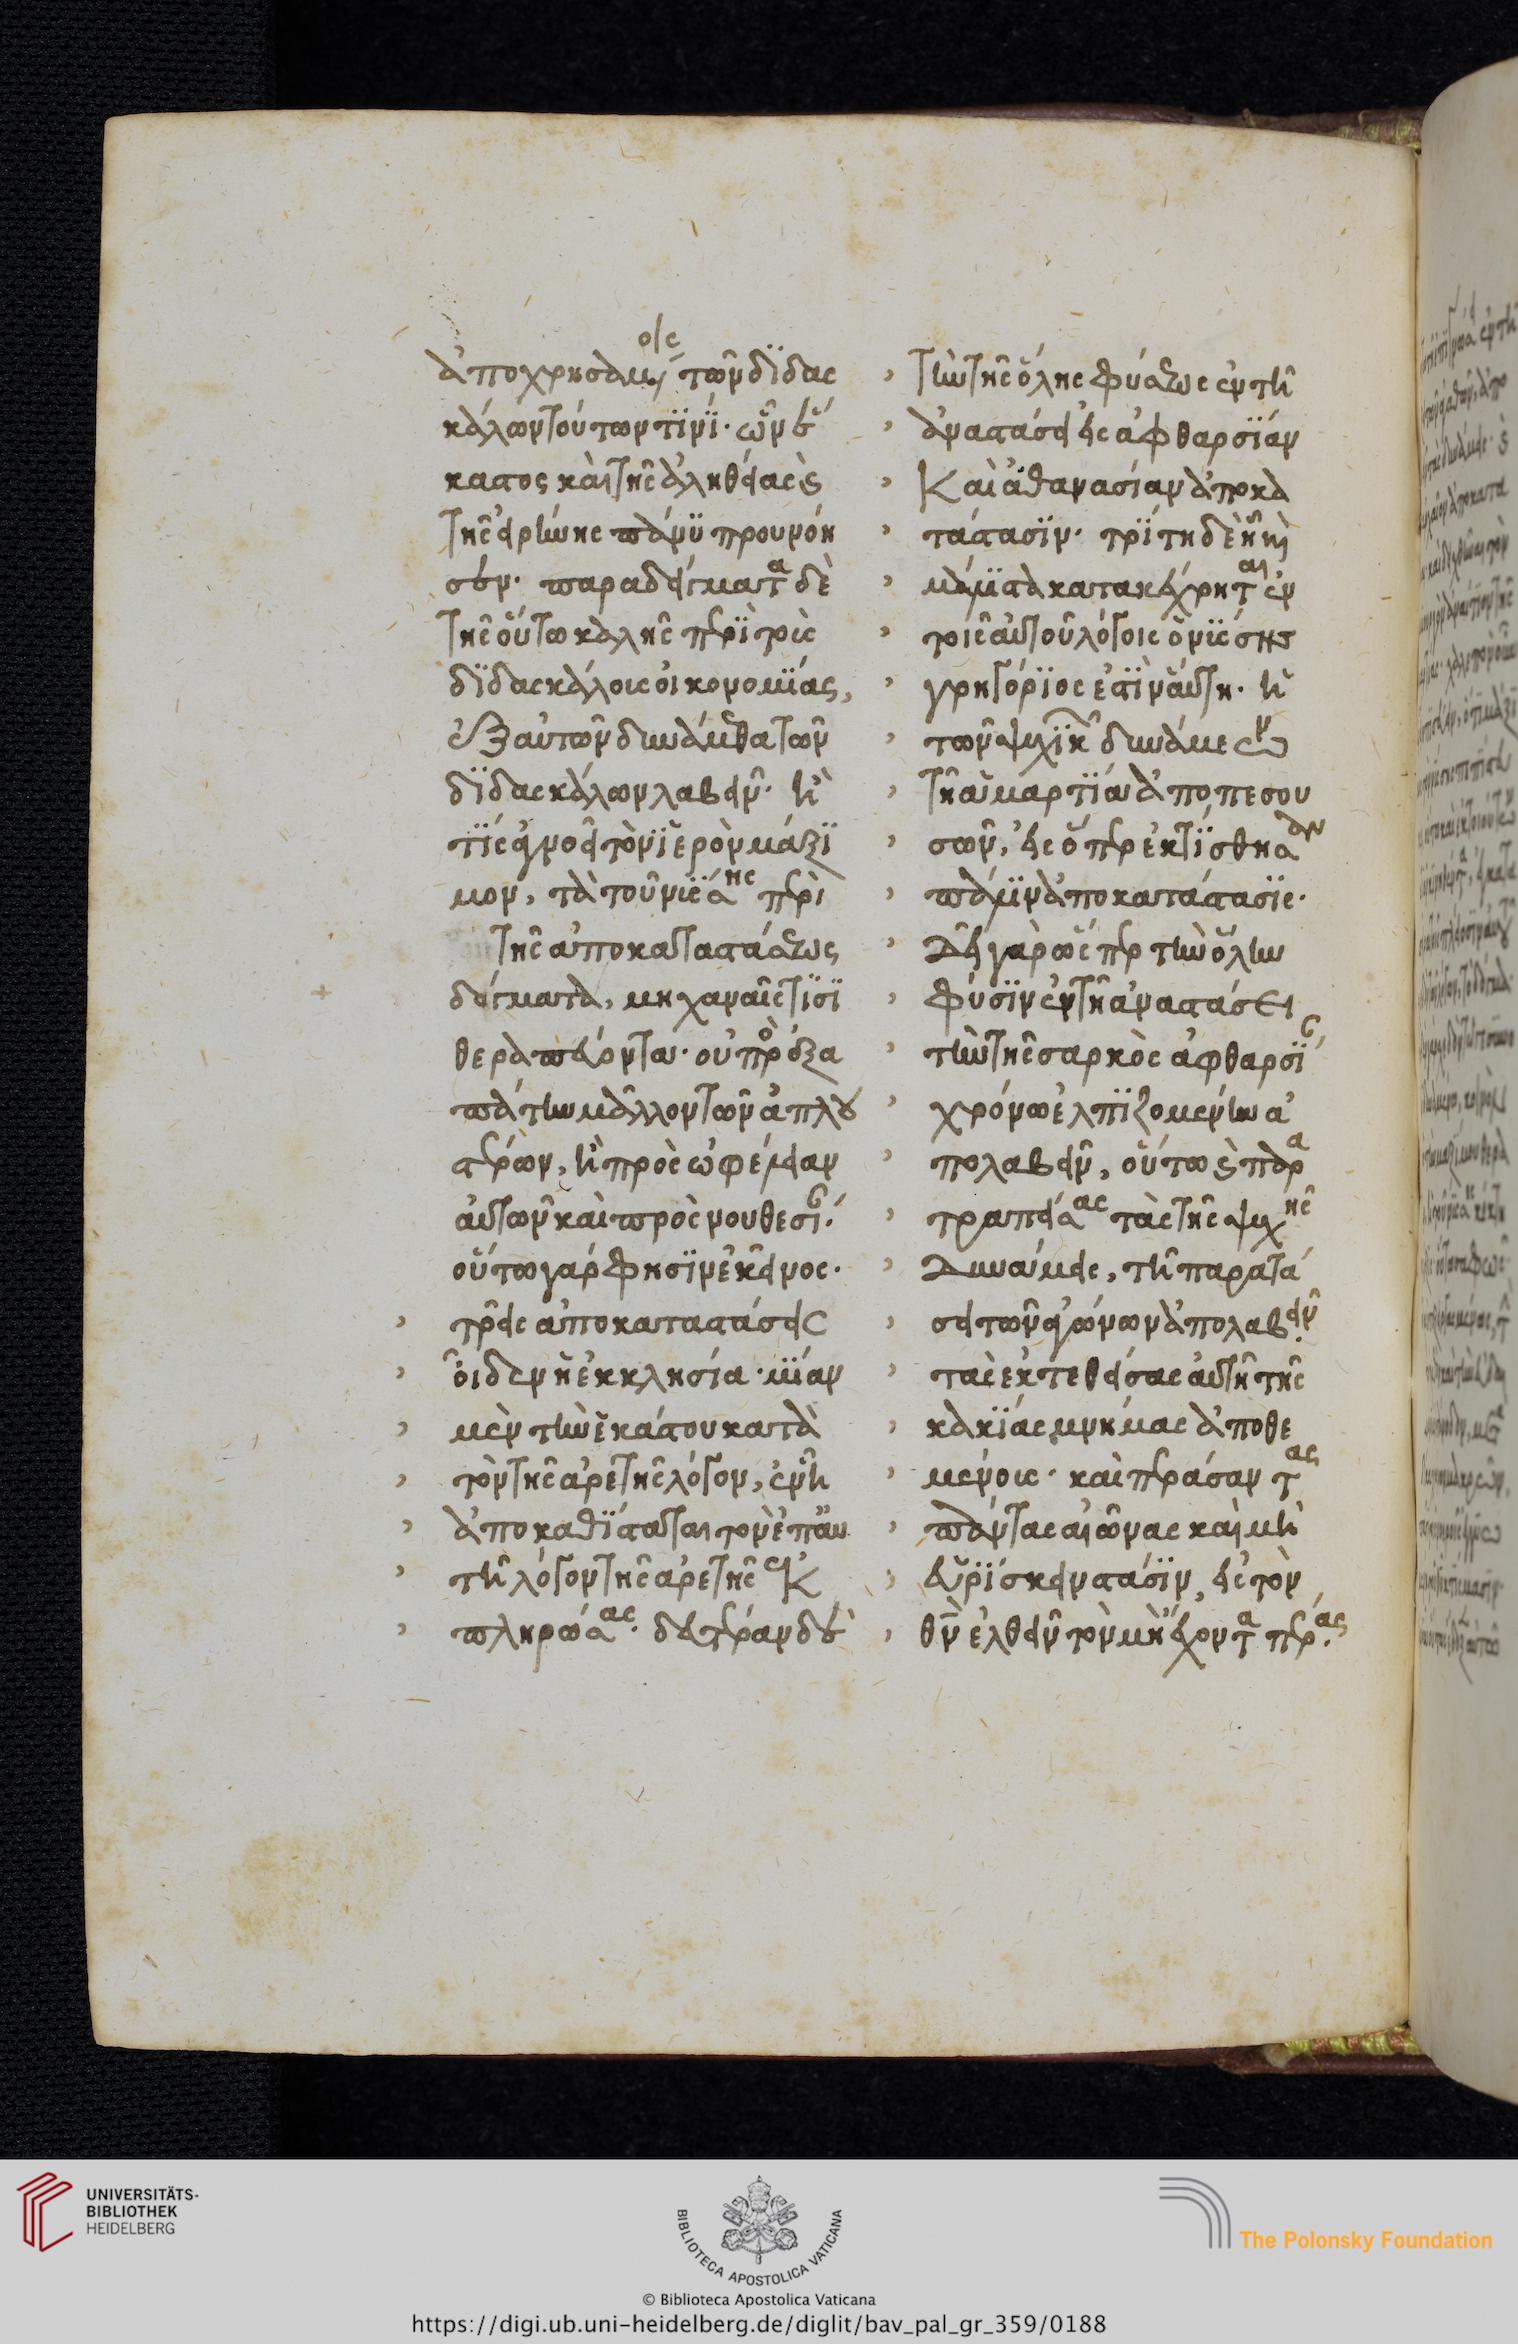 ἀποχρησαμένοις τῶν διδασ
κάλων τούτων τινί· ὧν ἕ
καστος καὶ τῆς ἀληθείας καὶ
τῆς εἰρήνης πάνυ προυνόη
σεν· παραδείγματα δὲ
τῆς οὕτω καλῆς περὶ τοὺς
διδασκάλους οἰκονομίας,
ἐξ αὐτῶν δυνάμεθα τῶν
διδασκάλων λαβεῖν· ἢ
τίς ἀγνοεῖ τὸν ἱερὸν μάξι
μον, τὰ τοῦ νύσσης περὶ
τῆς ἀποκαταστάσεως
δόγματα, μηχαναῖς τισι
θεραπεύοντα· οὐ πρὸς ἐξα
πάτην μᾶλλον τῶν ἁπλου
στέρων, ἢ πρὸς ὠφέλειαν
αὐτῶν καὶ πρὸς νουθεσίαν·
οὕτω γάρ φησιν ἐκεῖνος·
τρεῖς ἀποκαταστάσεις
οἶδεν ἡ ἐκκλησία· μίαν
μὲν τὴν ἑκάστου κατὰ
τὸν τῆς ἀρετῆς λόγον, ἐν ἧ
ἀποκαθίσταται τὸν ἐπ' αὐ
τῇ λόγον τῆς ἀρετῆς ἐκ
πληρώσας· δευτέραν δὲ
τὴν τῆς ὅλης φύσεως ἐν τῇ
ἀναστάσει εἰς ἀφθαρσίαν
καὶ ἀθανασίαν ἀποκα
τάστασιν· τρίτη δὲ ἧ καὶ
μάλιστα κατακέχρηται ἐν
τοῖς αὐτοῦ λόγοις ὁ νύσσης
γρηγόριος ἐστὶν αὕτη· ἡ
τῶν ψυχικῶν δυνάμεων
τῇ ἁμαρτία ὑποπεσου
σῶν, εἰς ὅπερ ἐκτίσθησαν
πάλιν ἀποκατάστασις·
δεῖ γὰρ ὥσπερ τὴν ὅλην
φύσιν ἐν τῇ ἀναστάσει
τὴν τῆς σαρκὸς ἀφθαρσίαν
χρόνω ἐλπιζομένην ἀ
πολαβεῖν, οὕτω καὶ παρα
τραπείσας τὰς τῆς ψυχῆς
δυνάμεις, τῇ παρατά
σει τῶν αἰώνων ἀποβαλεῖν
τὰς ἐντεθείσας αὐτῇ τῆς
κακίας μνήμας ἀποθε
μένους· καὶ περάσασαν τοὺς
πάντας αἰῶνας καὶ μὴ
εὑρίσκειν στάσιν, εἰς τὸν
θν ἐλθεῖν τὸν μὴ ἔχοντα πέρας·
UNIVERSITÄTS-
BIBLIOTHEK
HEIDELBERG
BIBLIOTECA APOSTOLICA VATICANA
The Polonsky Foundation
© Biblioteca Apostolica Vaticana
https://digi.ub.uni-heidelberg.de/diglit/bav_pal_gr_359/0188